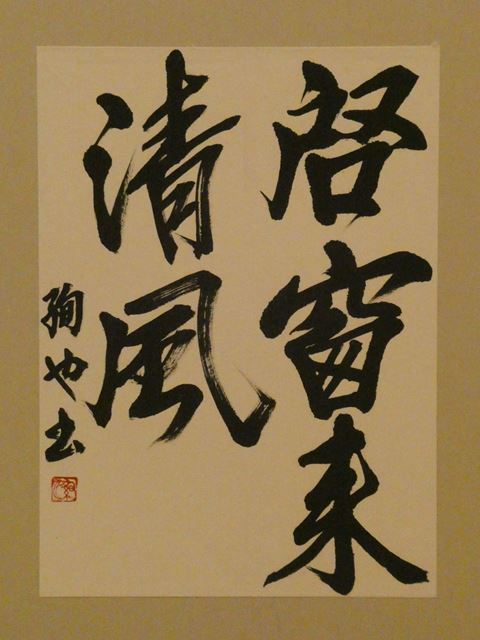 啓窗来
清風
也書